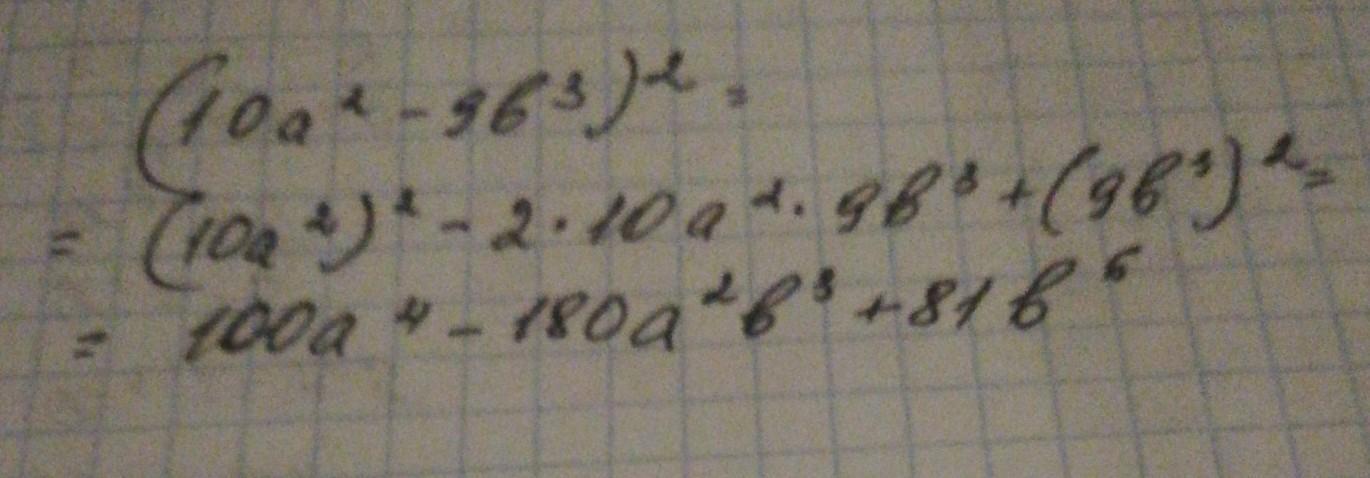 (10a² - 9b³)² =
= (10a²)² - 2 · 10a² · 9b³ + (9b³)² =
= 100a⁴ - 180a²b³ + 81b⁶